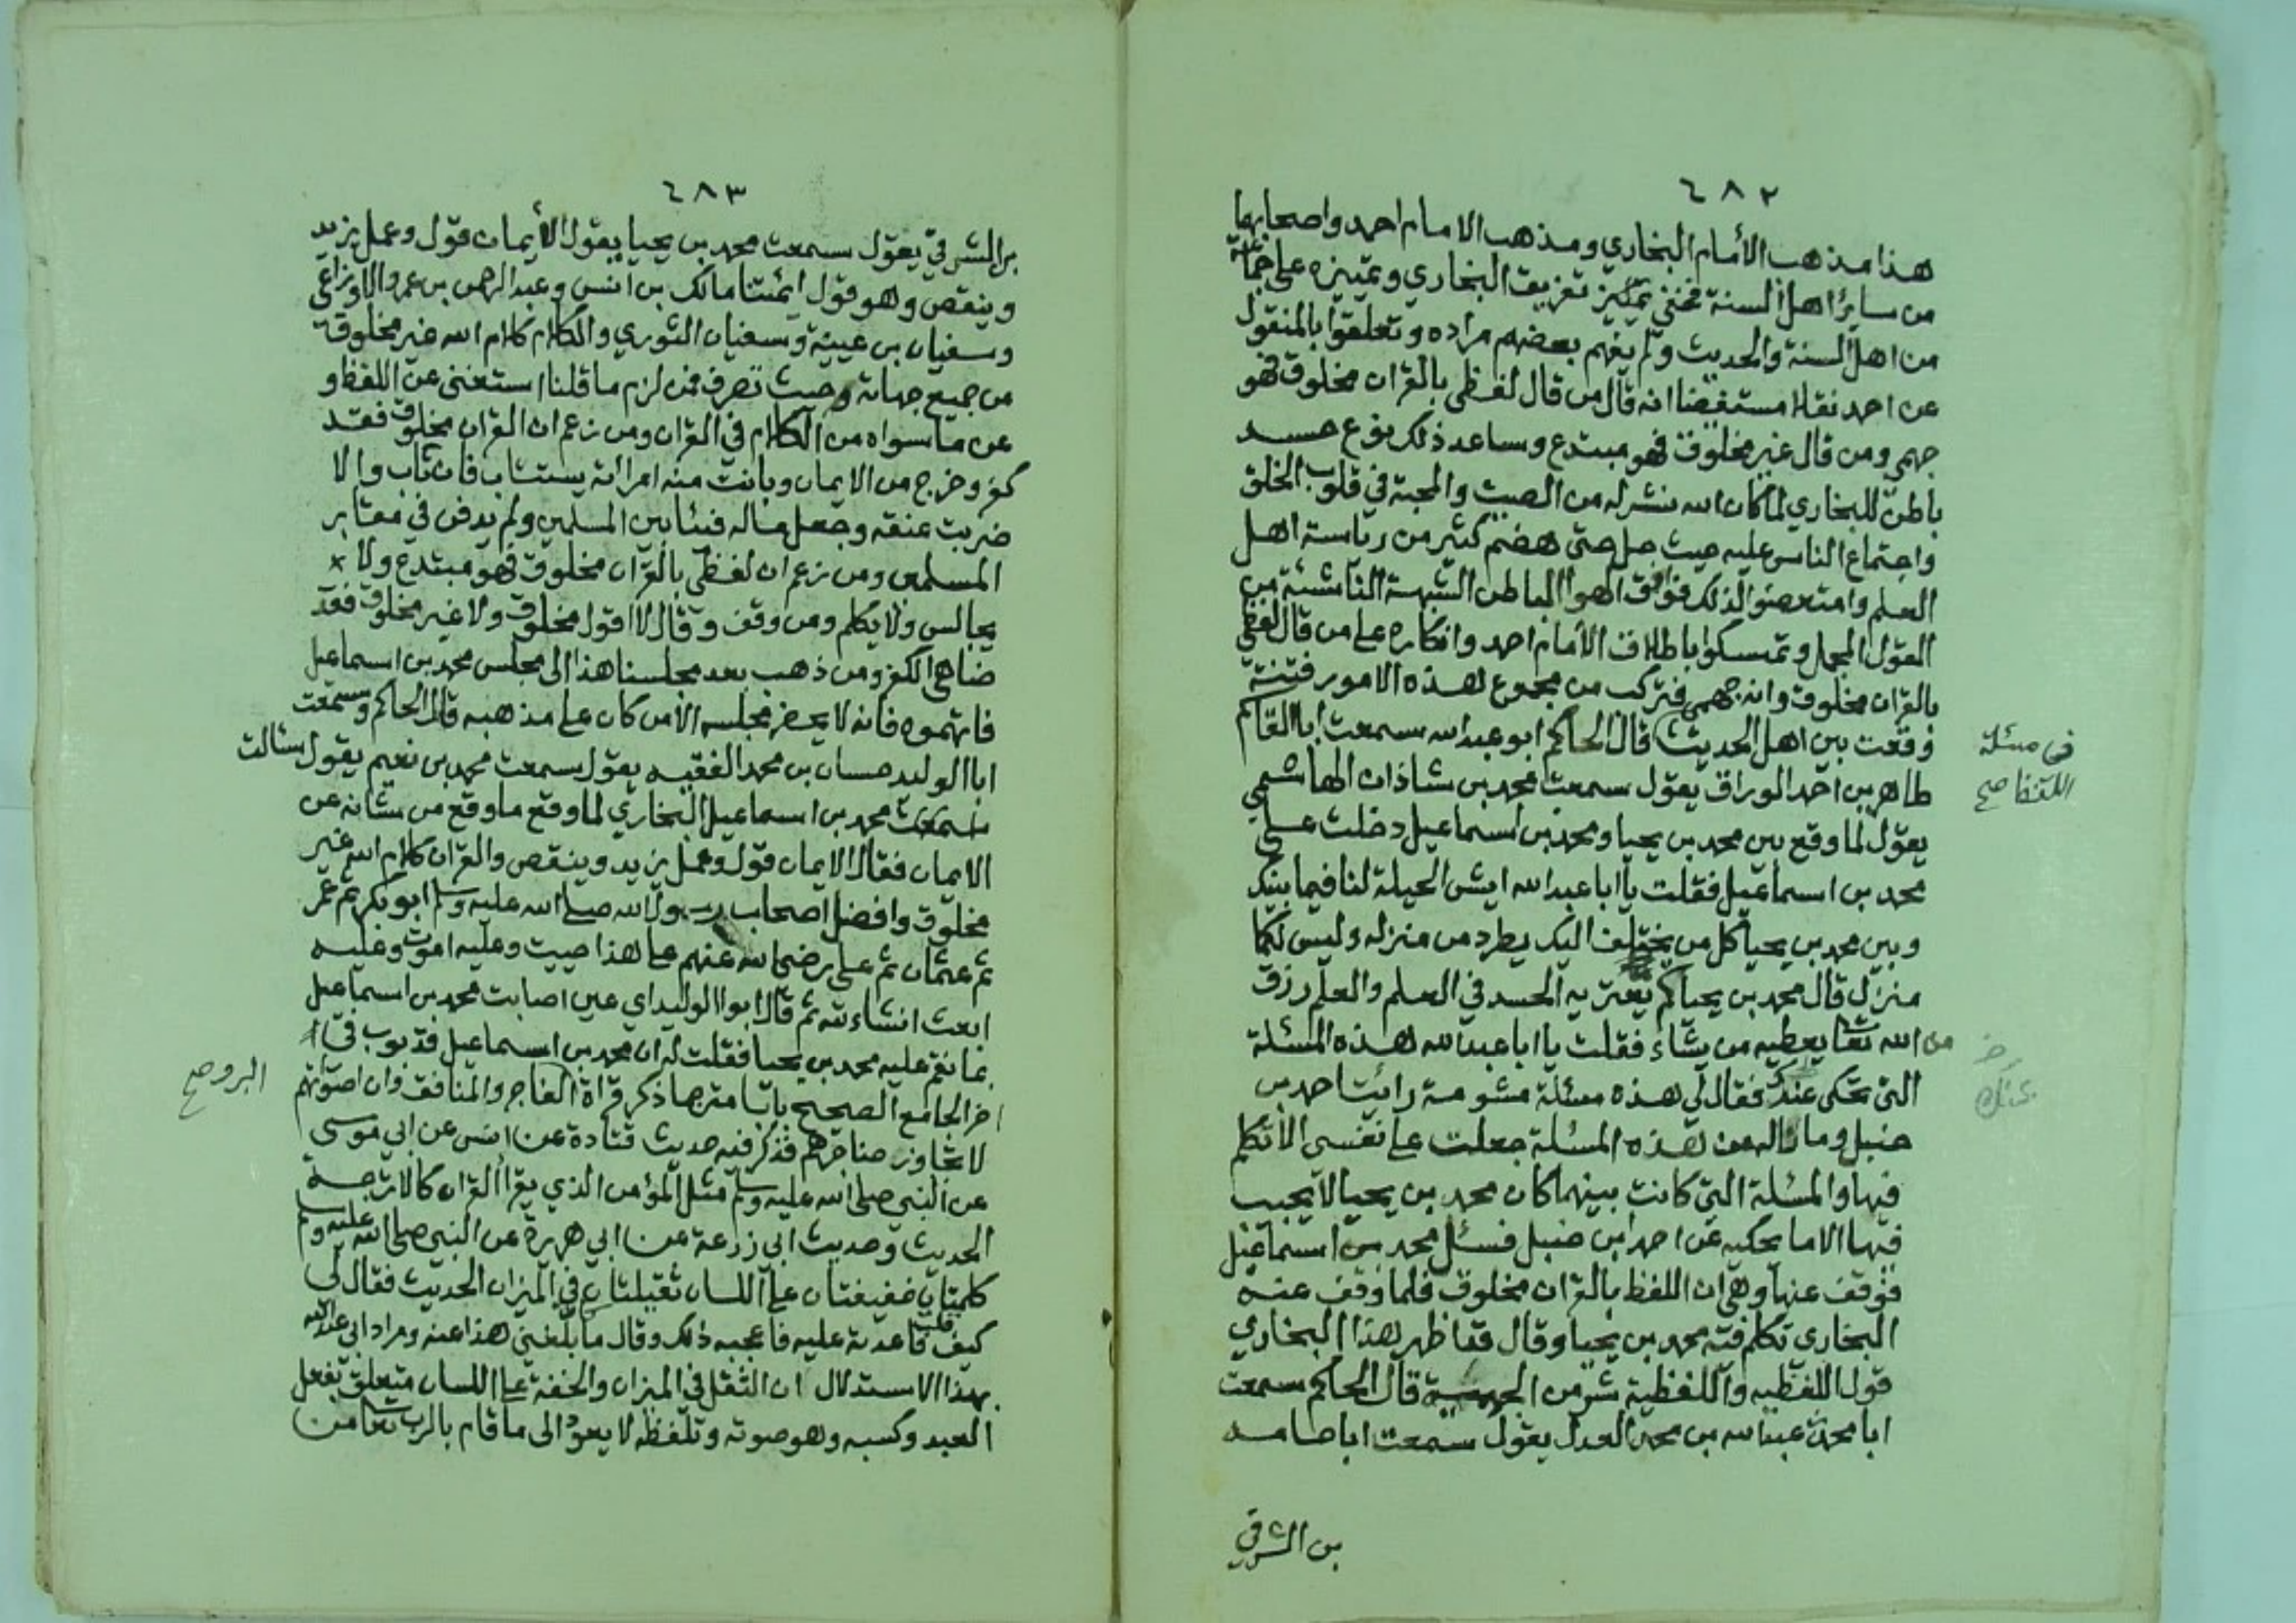 ٤٨٢
هذا مذهب الأمام البخاري ومذهب الامام احمد واصحابهما
من سائر اهل السنة فخفي تمييز تفريق البخاري وتمييزه على جماعة
من اهل السنة والحديث ولم يفهم بعضهم مراده وتعلقوا بالمنقول
عن احمد نقلا مستفيضا انه قال من قال لفظي بالقران مخلوق فهو
جهمي ومن قال غير مخلوق فهو مبتدع وساعد ذلك نوع حسد
باطن للبخاري لما كان الله نشر له من الصيت والمحبة في قلوب الخلق
واجتماع الناس عليه حيث حل حتى هضم كثير من رياسة اهل
العلم وامتعضوا لذلك فوافق الهوا الباطن الشبهة الناشئة من
القول المجمل وتمسكوا باطلاق الأمام احمد وانكاره على من قال لفظي
بالقران مخلوق وانه جهمي فتركب من مجموع هذه الامور فتنة
وقعت بين اهل الحديث قال الحاكم ابو عبد الله سمعت ابا القاسم
طاهر بن احمد الوراق يقول سمعت محمد بن شاذان الهاشمي
يقول لما وقع بين محمد بن يحيا ومحمد بن اسماعيل دخلت على
محمد بن اسماعيل فقلت يا ابا عبد الله ايش الحيلة لنا فيما بينك
وبين محمد بن يحيا كل من يختلف اليك يطرد من منزله وليس لكما
منزل قال محمد بن يحيا كم يعتريه الحسد في العلم والعلم رزق
من الله تعا يعطيه من يشاء فقلت يا ابا عبد الله هذه المسئلة
التي تحكى عندك فقال لي هذه مسئلة مشومة رايت احمد بن
حنبل وما ناله من هذه المسئلة جعلت على نفسي الا اتكلم
فيها والمسئلة التي كانت بينهما كان محمد بن يحيا لا يجيب
فيها الا ما يحكيه عن احمد بن حنبل فسئل محمد بن اسماعيل
فوقف عنها وهي ان اللفظ بالقران مخلوق فلما وقف عنه
البخاري تكلم فيه محمد بن يحيا وقال قد اظهر هذا البخاري
قول اللفظيه واللفظية شر من الجهمية قال الحاكم سمعت
ابا محمد عبد الله بن محمد العدل يقول سمعت ابا حامد
بن الشرقي
في مسئلة
اللفظ صح
عنك
٤٨٣
بن الشرقي يقول سمعت محمد بن يحيا يقول الأيمان قول وعمل يزيد
وينقص وهو قول ائمتنا مالك بن انس وعبد الرحمن بن عمرو الاوزاعي
وسفيان بن عيينة وسفيان الثوري والكلام كلام الله غير مخلوق
من جميع جهاته وحيث تصرف فمن لزم ما قلنا استغنى عن اللفظ و
عن ما سواه من الكلام في القران ومن زعم ان القران مخلوق فقد
كفر وخرج من الايمان وبانت منه امراته يستتاب فان تاب والا
ضربت عنقه وجعل ماله فيئا بين المسلمين ولم يدفن في مقابر
المسلمين ومن زعم ان لفظي بالقران مخلوق فهو مبتدع ولا
يجالس ولا يكلم ومن وقف وقال لا اقول مخلوق ولا غير مخلوق فقد
ضاهى الكفر ومن ذهب بعد مجلسنا هذا الى مجلس محمد بن اسماعيل
فاتهموه فانه لا يحضر مجلسه الا من كان على مذهبه قال الحاكم وسمعت
ابا الوليد حسان بن محمد الفقيه يقول سمعت محمد بن نعيم يقول سئالت
محمد بن اسماعيل البخاري لما وقع ما وقع من شانه عن
الايمان فقال الايمان قول وعمل يزيد وينقص والقران كلام الله غير
مخلوق وافضل اصحاب رسول الله صلى الله عليه وسلم ابو بكر ثم عمر
ثم عثمان ثم علي رضي الله عنهم على هذا حييت وعليه اموت وعليه
ابعث انشاء الله ثم قال ابوا الوليد اي عين اصابت محمد بن اسماعيل
بما نقم عليه محمد بن يحيا فقلت له ان محمد بن اسماعيل قد بوب في
اخر الجامع الصحيح بابا مترجما ذكر قراة الفاجر والمنافق وان اصواتهم
لا تجاوز حناجرهم فذكر فيه حديث قتادة عن انس عن ابي موسى
عن النبي صلى الله عليه وسلم مثل المؤمن الذي يقرا القران كالاترجة
الحديث وحديث ابي زرعة عن ابي هريرة عن النبي صلى الله عليه وسلم
كلمتان خفيفتان على اللسان ثقيلتان في الميزان الحديث فقال لي
كيف قلت فاعدته عليه فاعجبه ذلك وقال ما بلغني هذا عنه ومراد ابي عبد الله
بهذا الاستدلال ان الثقل في الميزان والخفة على اللسان متعلق بفعل
العبد وكسبه وهو صوته وتلفظه لا يعود الى ما قام بالرب تعا من
البر وصح